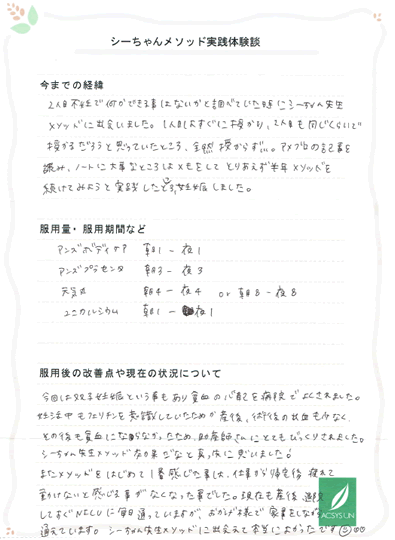 シーちゃんメソッド実践体験談
今までの経緯
2人目不妊で何かできる事はないかと調べていた時にシーちゃん先生
メソッドに出会いました。1人目はすぐに授かり、2人目も同じくらいで
授かるだろうと思っていたところ、全然授からず…。アメブロの記事を
読み、ノートに大事なところはメモをして とりあえず半年メソッドを
続けてみようと実践したところ、妊娠しました。
服用量・服用期間など
アンズボディケア 朝1 - 夜1
アンズプラセンタ 朝3 - 夜3
朝4 - 夜4 or 朝8 - 夜8
ユニカルシウム 朝1 - 夜1
服用後の改善点や現在の状況について
今回は双子妊娠という事もあり貧血の心配を病院でされました。
妊活中もフェリチンを意識していたためか産後、術後の出血も少なく、
その後も貧血にならなかったため、助産師さんにとてもびっくりされました。
シーちゃん先生メソッドのおかげだなと真っ先に思いました!
またメソッドをはじめて1番感じた事は、仕事から帰宅後 疲れて
動けないと感じる事がなくなった事でした。現在も産後 退院
してすぐNICUに毎日通っていますが、おかげ様で 家事をしながら
通えています。シーちゃん先生メソッドに出会えて本当によかったです
ACSYS UN